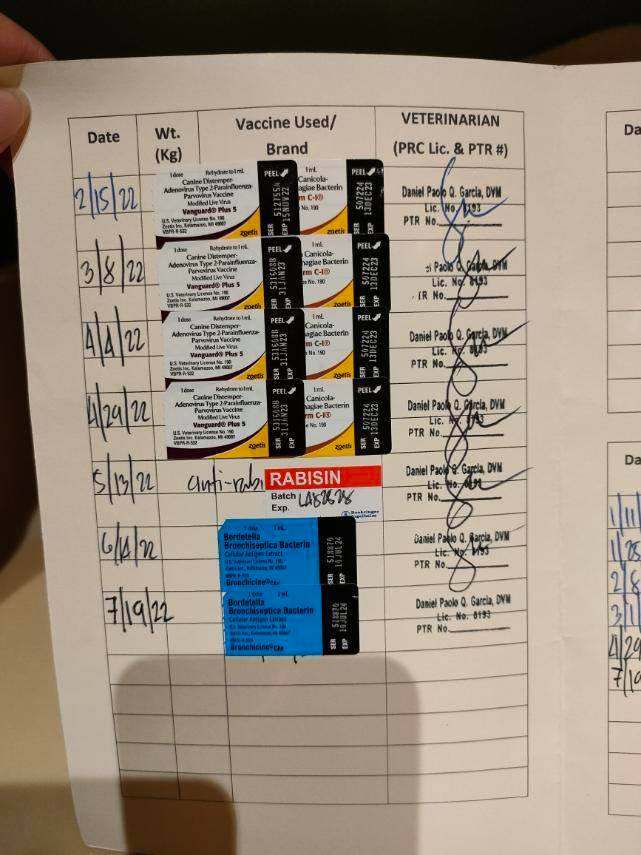 Date
Wt.
(Kg)
Vaccine Used/
Brand
VETERINARIAN
(PRC Lic. & PTR #)
2/15/22
1 dose Rehydrate to 1 mL
Canine Distemper-
Adenovirus Type 2-Parainfluenza-
Parvovirus Vaccine
Modified Live Virus
Vanguard® Plus 5
U.S. Veterinary License No. 190
Zoetis Inc. Kalamazoo, MI 49007
VBPR-R-532
zoetis
PEEL
SER 512755A
EXP 15NOV22
1 mL
Canicola-
agiae Bacterin
rm C-I®
se No. 190
PEEL
SER 507224
EXP 13DEC23
Daniel Paolo Q. Garcia, DVM
Lic. No. 8193
PTR No.
3/8/22
1 dose Rehydrate to 1 mL
Canine Distemper-
Adenovirus Type 2-Parainfluenza-
Parvovirus Vaccine
Modified Live Virus
Vanguard® Plus 5
U.S. Veterinary License No. 190
Zoetis Inc. Kalamazoo, MI 49007
VBPR-R-532
zoetis
PEEL
SER 531608B
EXP 31JAN23
1 mL
Canicola-
agiae Bacterin
rm C-I®
se No. 190
PEEL
SER 507224
EXP 13DEC23
Q. Garcia, DVM
Lic. No. 8193
TR No.
4/4/22
1 dose Rehydrate to 1 mL
Canine Distemper-
Adenovirus Type 2-Parainfluenza-
Parvovirus Vaccine
Modified Live Virus
Vanguard® Plus 5
U.S. Veterinary License No. 190
Zoetis Inc. Kalamazoo, MI 49007
VBPR-R-532
zoetis
PEEL
SER 531608B
EXP 31JAN23
1 mL
Canicola-
agiae Bacterin
m C-I®
No. 190
PEEL
SER 507224
EXP 13DEC23
Daniel Paolo Q. Garcia, DVM
Lic. No. 8193
PTR No.
4/29/22
1 dose Rehydrate to 1 mL
Canine Distemper-
Adenovirus Type 2-Parainfluenza-
Parvovirus Vaccine
Modified Live Virus
Vanguard® Plus 5
U.S. Veterinary License No. 190
Zoetis Inc. Kalamazoo, MI 49007
VBPR-R-532
zoetis
PEEL
SER 531608B
EXP 31JAN23
1 mL
Canicola-
agiae Bacterin
m C-I®
No. 190
PEEL
SER 507224
EXP 13DEC23
Daniel Paolo Q. Garcia, DVM
Lic. No. 8193
PTR No.
5/13/22
anti-rabi
RABISIN
Batch
Exp.
Boehringer
Ingelheim
Daniel Paolo Q. Garcia, DVM
Lic. No. 8193
PTR No.
6/4/22
1 dose 1 mL
Bordetella
Bronchiseptica Bacterin
Cellular Antigen Extract
U.S. Veterinary License No. 190
Zoetis Inc., Kalamazoo, MI 49007
VBPR-R-
Bronchicine® CAe
SER 518876
EXP 10JUL24
Daniel Paolo Q. Garcia, DVM
Lic. No. 8193
PTR No.
7/19/22
1 dose 1 mL
Bordetella
Bronchiseptica Bacterin
Cellular Antigen Extract
U.S. Veterinary License No. 190
Zoetis Inc., Kalamazoo, MI 49007
Bronchicine® CAe
SER 518876
EXP 10JUL24
Daniel Paolo Q. Garcia, DVM
Lic. No. 8193
PTR No.
Da
Da
1/11/
1/25
2/8
3/11
4/29
7/19